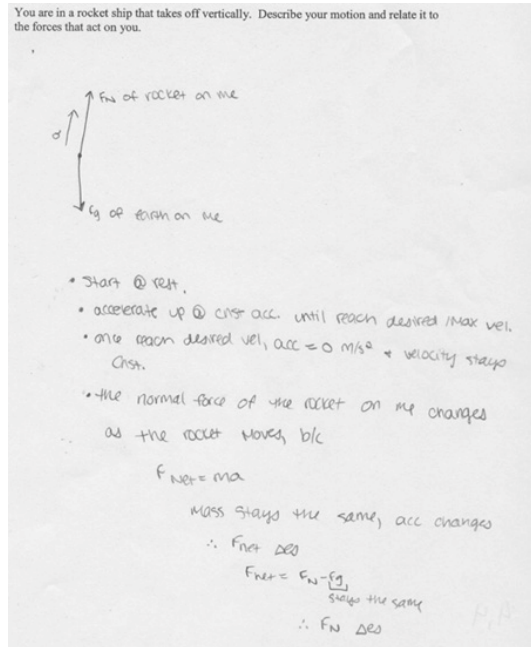 You are in a rocket ship that takes off vertically. Describe your motion and relate it to
the forces that act on you.
FN of rocket on me
a
Fg of Earth on me
• Start @ rest.
• accelerate up @ cnst acc. until reach desired /max vel.
• once reach desired vel, acc = 0 m/s² & velocity stays
Cnst.
• the normal force of the rocket on me changes
as the rocket moves, b/c
F Net = ma
mass stays the same, acc changes
∴ Fnet Δes
Fnet = FN - Fg
stays the same
∴ FN Δes